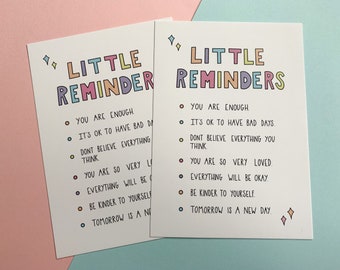 LITTLE
REMINDERS
YOU ARE ENOUGH.
IT'S OK TO HAVE BAD DAYS
DONT BELIEVE EVERYTHING YOU
THINK.
YOU ARE SO VERY LOVED
EVERYTHING WILL BE OKAY.
BE KINDER TO YOURSELF.
TOMORROW IS A NEW DAY.
LITTLE
REMINDERS
YOU ARE ENOUGH.
IT'S OK TO HAVE BAD DAYS.
DONT BELIEVE EVERYTHING YOU
THINK.
YOU ARE SO VERY LOVED
EVERYTHING WILL BE OKAY.
BE KINDER TO YOURSELF.
TOMORROW IS A NEW DAY.